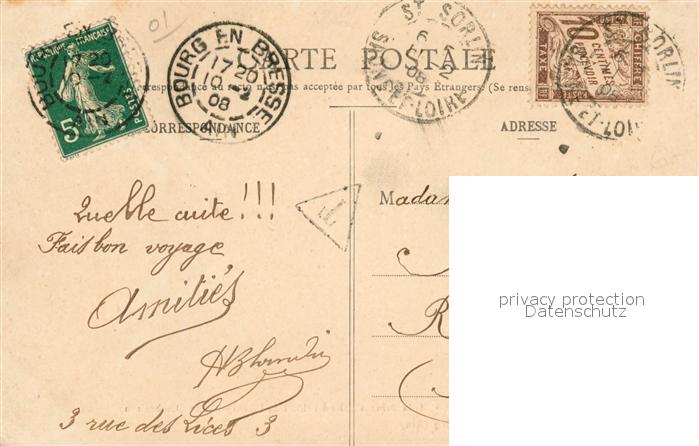 01
REPUBLIQUE FRANÇAISE
POSTES
5
BOURG EN BRESSE
17 20
10 - 2
08
AIN
CARTE POSTALE
ST SORLIN
6
2
08
SAÔNE-ET-LOIRE
CHIFFRE
10
CENTIMES
A PERCEVOIR
TAXE
ORLIN
ET-LOIRE
Correspondance au recto n'est pas acceptée par tous les Pays Étrangers. (Se rens
CORRESPONDANCE
ADRESSE
T
Madam
Quelle cuite !!!
Fais bon voyage
Amitiés
3 rue des Lices 3
privacy protection
Datenschutz